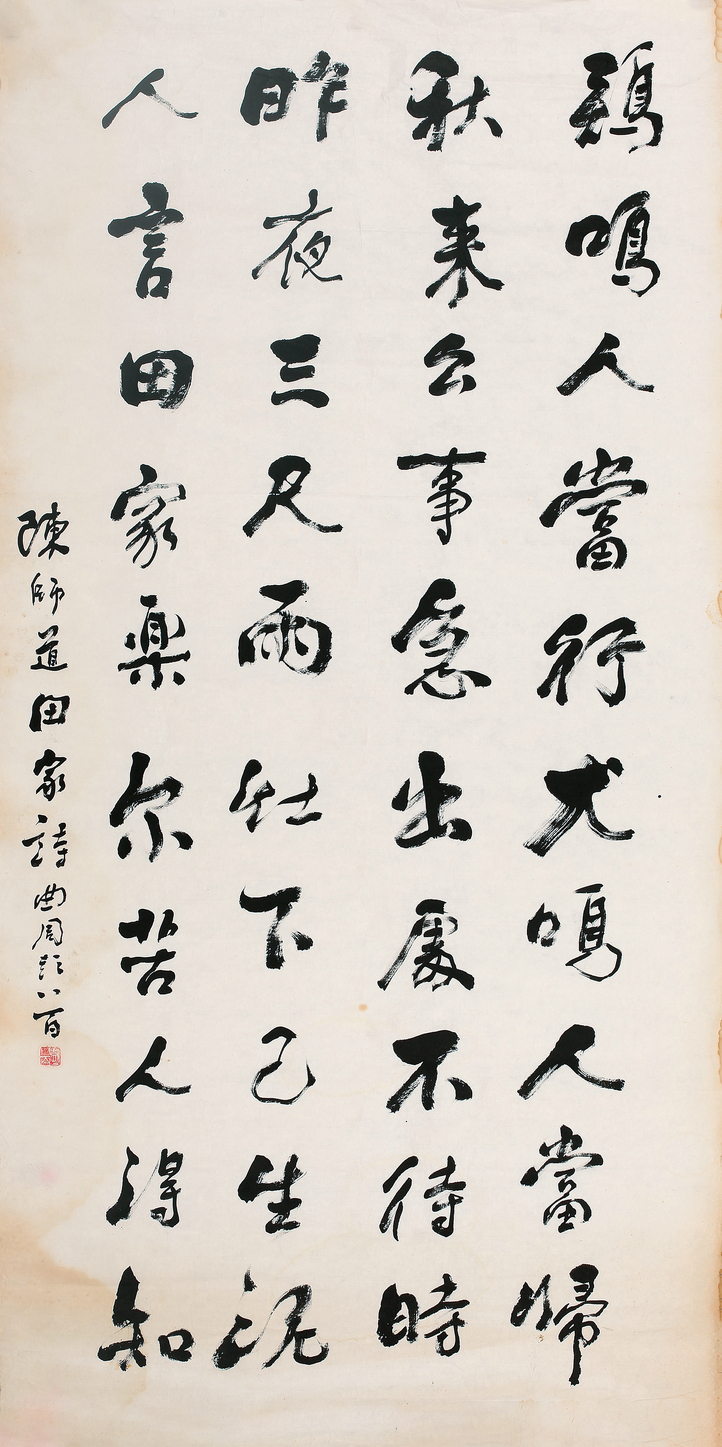 鷄鳴人當行犬鳴人當歸
秋来公事急出處不待時
昨夜三尺雨灶下已生泥
人言田家樂尔苦人得知
陳師道田家詩曲周彭八百